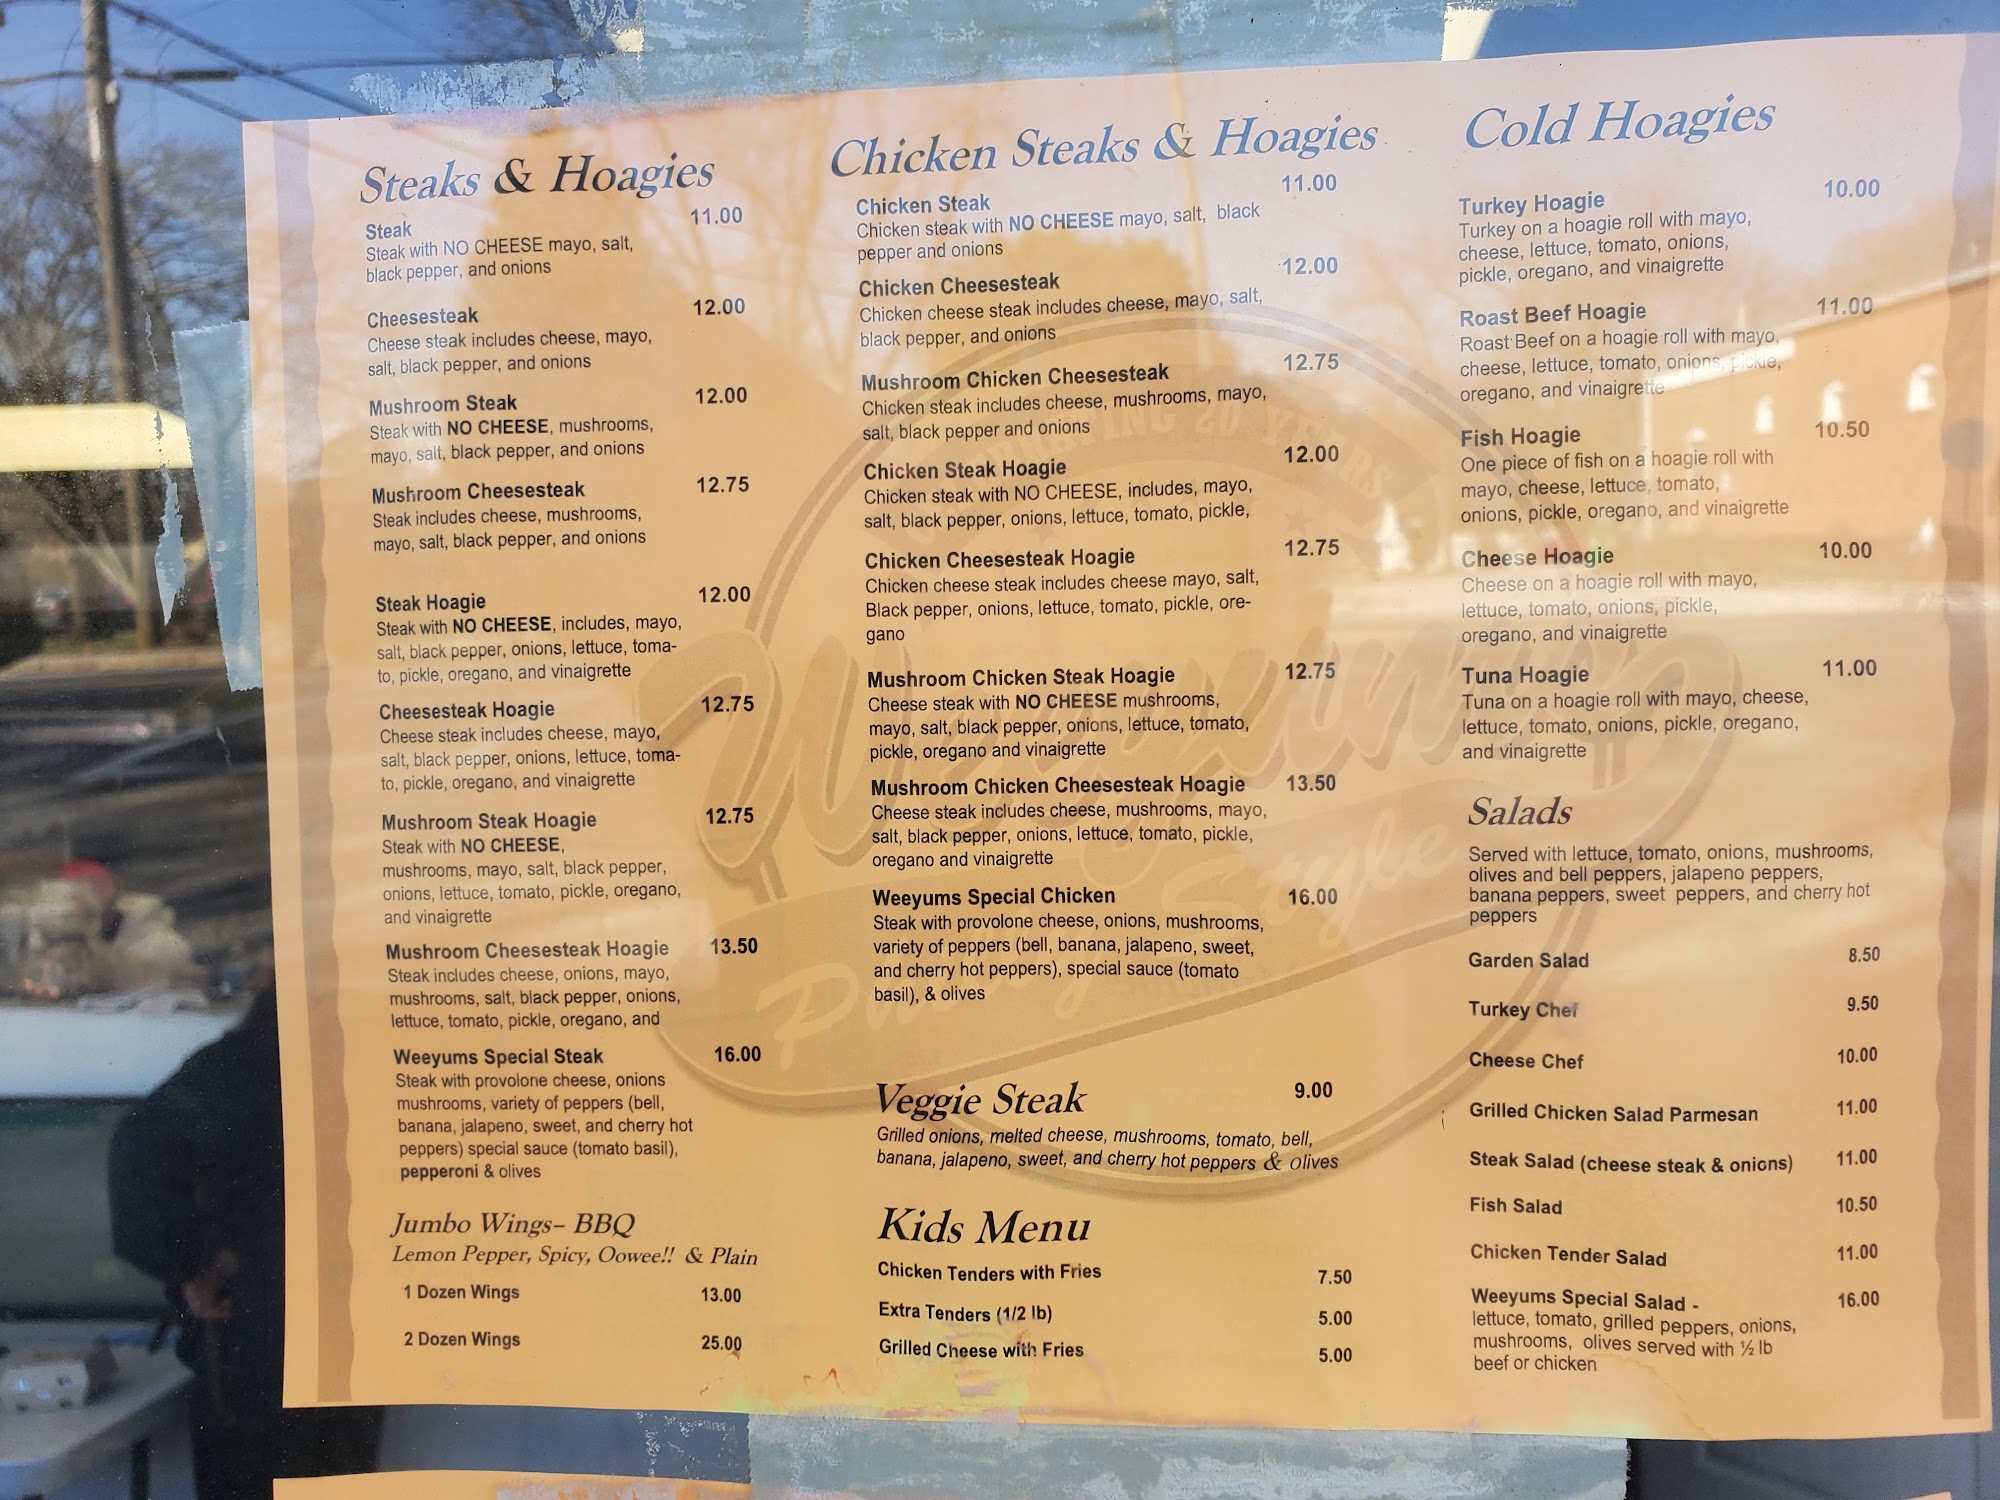 Steaks & Hoagies
Steak 11.00
Steak with NO CHEESE mayo, salt,
black pepper, and onions
Cheesesteak 12.00
Cheese steak includes cheese, mayo,
salt, black pepper, and onions
Mushroom Steak 12.00
Steak with NO CHEESE, mushrooms,
mayo, salt, black pepper, and onions
Mushroom Cheesesteak 12.75
Steak includes cheese, mushrooms,
mayo, salt, black pepper, and onions
Steak Hoagie 12.00
Steak with NO CHEESE, includes, mayo,
salt, black pepper, onions, lettuce, toma-
to, pickle, oregano, and vinaigrette
Cheesesteak Hoagie 12.75
Cheese steak includes cheese, mayo,
salt, black pepper, onions, lettuce, toma-
to, pickle, oregano, and vinaigrette
Mushroom Steak Hoagie 12.75
Steak with NO CHEESE,
mushrooms, mayo, salt, black pepper,
onions, lettuce, tomato, pickle, oregano,
and vinaigrette
Mushroom Cheesesteak Hoagie 13.50
Steak includes cheese, onions, mayo,
mushrooms, salt, black pepper, onions,
lettuce, tomato, pickle, oregano, and
Weeyums Special Steak 16.00
Steak with provolone cheese, onions
mushrooms, variety of peppers (bell,
banana, jalapeno, sweet, and cherry hot
peppers) special sauce (tomato basil),
pepperoni & olives
Jumbo Wings– BBQ
Lemon Pepper, Spicy, Oowee!! & Plain
1 Dozen Wings 13.00
2 Dozen Wings 25.00
Chicken Steaks & Hoagies
Chicken Steak 11.00
Chicken steak with NO CHEESE mayo, salt, black
pepper and onions
Chicken Cheesesteak 12.00
Chicken cheese steak includes cheese, mayo, salt,
black pepper, and onions
Mushroom Chicken Cheesesteak 12.75
Chicken steak includes cheese, mushrooms, mayo,
salt, black pepper and onions
Chicken Steak Hoagie 12.00
Chicken steak with NO CHEESE, includes, mayo,
salt, black pepper, onions, lettuce, tomato, pickle,
Chicken Cheesesteak Hoagie 12.75
Chicken cheese steak includes cheese mayo, salt,
Black pepper, onions, lettuce, tomato, pickle, ore-
gano
Mushroom Chicken Steak Hoagie 12.75
Cheese steak with NO CHEESE mushrooms,
mayo, salt, black pepper, onions, lettuce, tomato,
pickle, oregano and vinaigrette
Mushroom Chicken Cheesesteak Hoagie 13.50
Cheese steak includes cheese, mushrooms, mayo,
salt, black pepper, onions, lettuce, tomato, pickle,
oregano and vinaigrette
Weeyums Special Chicken 16.00
Steak with provolone cheese, onions, mushrooms,
variety of peppers (bell, banana, jalapeno, sweet,
and cherry hot peppers), special sauce (tomato
basil), & olives
Veggie Steak 9.00
Grilled onions, melted cheese, mushrooms, tomato, bell,
banana, jalapeno, sweet, and cherry hot peppers & olives
Kids Menu
Chicken Tenders with Fries 7.50
Extra Tenders (1/2 lb) 5.00
Grilled Cheese with Fries 5.00
Cold Hoagies
Turkey Hoagie 10.00
Turkey on a hoagie roll with mayo,
cheese, lettuce, tomato, onions,
pickle, oregano, and vinaigrette
Roast Beef Hoagie 11.00
Roast Beef on a hoagie roll with mayo,
cheese, lettuce, tomato, onions, pickle,
oregano, and vinaigrette
Fish Hoagie 10.50
One piece of fish on a hoagie roll with
mayo, cheese, lettuce, tomato,
onions, pickle, oregano, and vinaigrette
Cheese Hoagie 10.00
Cheese on a hoagie roll with mayo,
lettuce, tomato, onions, pickle,
oregano, and vinaigrette
Tuna Hoagie 11.00
Tuna on a hoagie roll with mayo, cheese,
lettuce, tomato, onions, pickle, oregano,
and vinaigrette
Salads
Served with lettuce, tomato, onions, mushrooms,
olives and bell peppers, jalapeno peppers,
banana peppers, sweet peppers, and cherry hot
peppers
Garden Salad 8.50
Turkey Chef 9.50
Cheese Chef 10.00
Grilled Chicken Salad Parmesan 11.00
Steak Salad (cheese steak & onions) 11.00
Fish Salad 10.50
Chicken Tender Salad 11.00
Weeyums Special Salad - 16.00
lettuce, tomato, grilled peppers, onions,
mushrooms, olives served with ½ lb
beef or chicken
20 YEARS
Weeyums
Philly Style